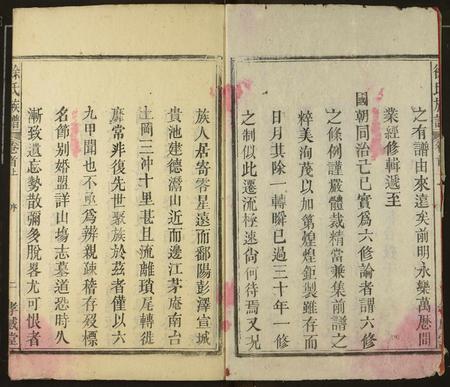 之有譜由來遠矣前明永樂萬厯間
業經修輯遞至
國朝同治己巳實爲六修論者謂六修
之條例謹嚴體裁精當兼集前譜之
粹美洵茂以加第煌煌鉅製雖存而
日月其除一轉瞬已過三十年一修
之制似此遷流極速尚何待焉又况
族人居寄零星遠而鄱陽彭澤宣城
貴池建德潛山近而邊江茅庵南台
土岡三沖十里甚且流離瑣尾轉徙
靡常非復先世聚族於兹者僅以六
九甲聞也不亟爲辨親疎稽存殁標
名飾别婚盟詳山塲志墓道恐時久
漸致遺忘勢散彌多脫畧尤可恨者
徐氏族譜
卷首上
序
二
孝威堂